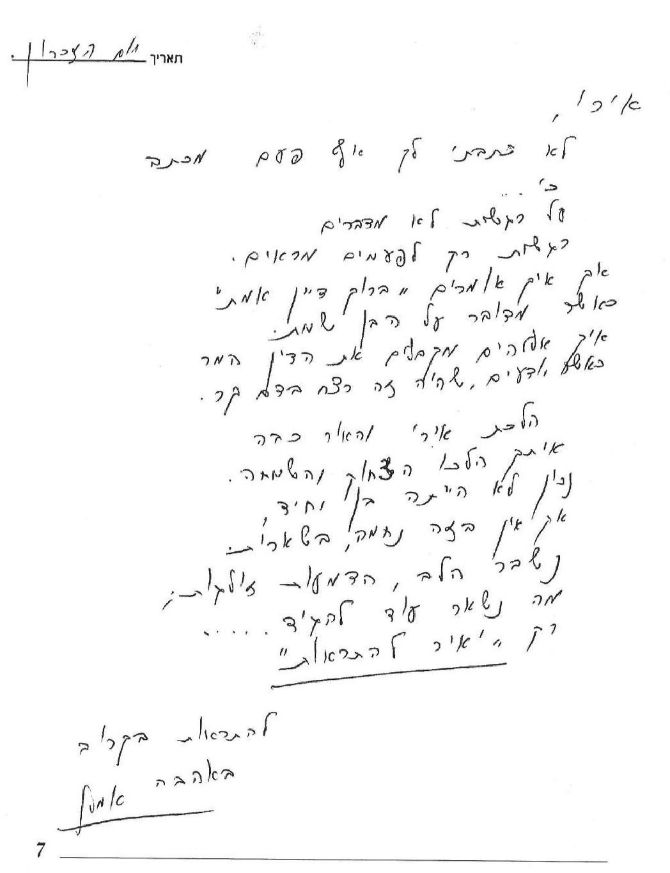 תאריך יום הזכרון.
אירי,
לא כתבתי לך אף פעם מכתב
כי ...
על רגשות לא מדברים
רגשות רק לפעמים מראים.
אך איך אומרים "ברוך דיין אמת"
כאשר מדובר על הבן שמת.
איך אלוהים מקבלים את הדין המר
כאשר יודעים, שהיה זה רצח בדם קר.
הלכת אירי והאור כבה
איתך הלכו הצחוק והשמחה.
נכון לא היית בן יחיד,
אך אין בזה נחמה, בשארית.
נשבר הלב, הדמעות זולגות;
מה נשאר עוד להגיד .....
רק "יאיר להתראות"
להתראות בקרוב
באהבה
7